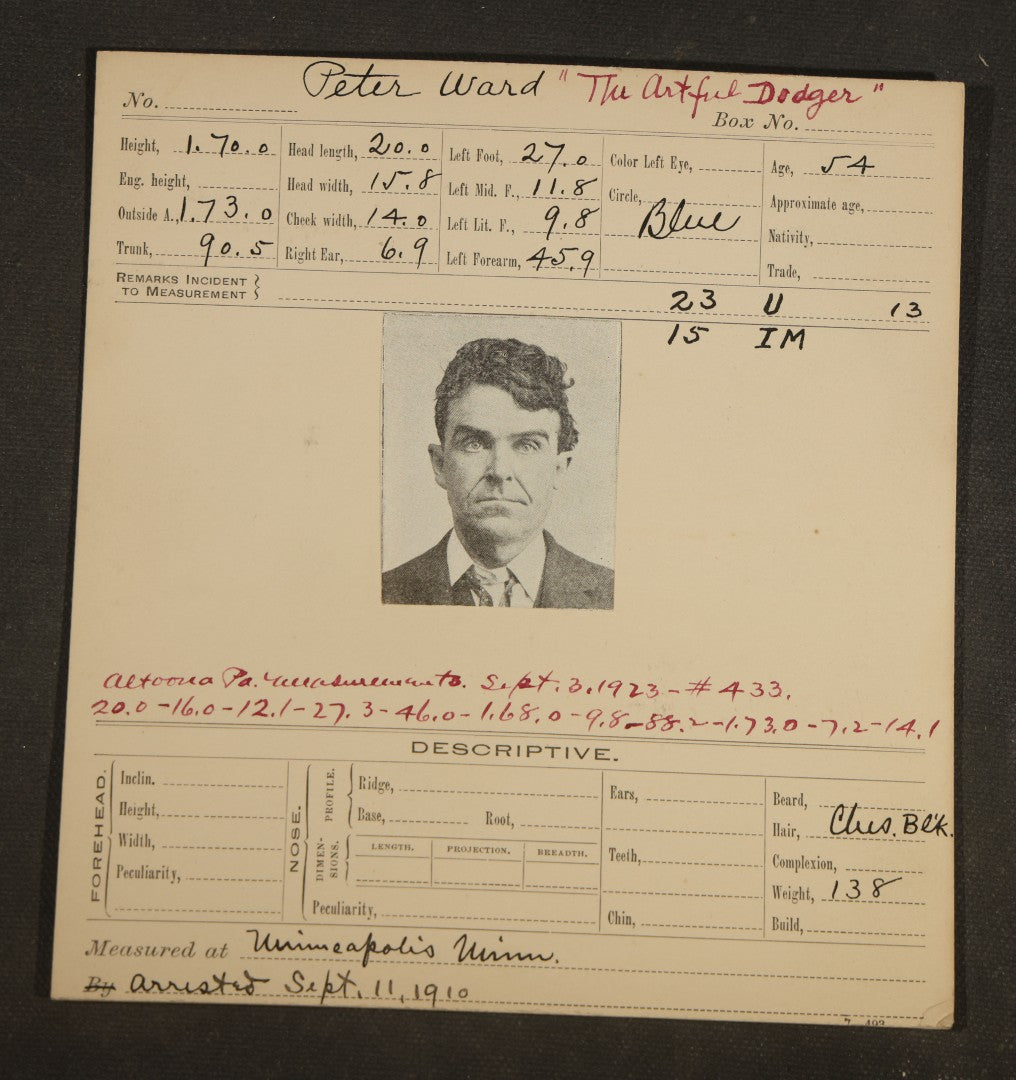 Peter Ward "The Artful Dodger"
No.
Box No.
Height, 1.70.0 Head length, 20.0 Left Foot, 27.0 Color Left Eye, Age, 54
Eng. height, Head width, 15.8 Left Mid. F., 11.8 Circle, Blue Approximate age,
Outside A., 1.73.0 Cheek width, 14.0 Left Lit. F., 9.8 Nativity,
Trunk, 90.5 Right Ear, 6.9 Left Forearm, 45.9 Trade,
REMARKS INCIDENT
TO MEASUREMENT
23 U 13
15 IM
Altoona Pa. measurements. Sept. 3. 1923 - # 433.
20.0 - 16.0 - 12.1 - 27.3 - 46.0 - 1.68.0 - 9.8 - 88.2 - 1.73.0 - 7.2 - 14.1
DESCRIPTIVE.
FOREHEAD.
Inclin.
Height,
Width,
Peculiarity,
NOSE.
PROFILE.
Ridge,
Base, Root,
DIMEN-
SIONS.
LENGTH. PROJECTION. BREADTH.
Peculiarity,
Ears,
Teeth,
Chin,
Beard,
Hair, Ches. Blk.
Complexion,
Weight, 138
Build,
Measured at Minneapolis Minn.
By Arrested Sept. 11, 1910